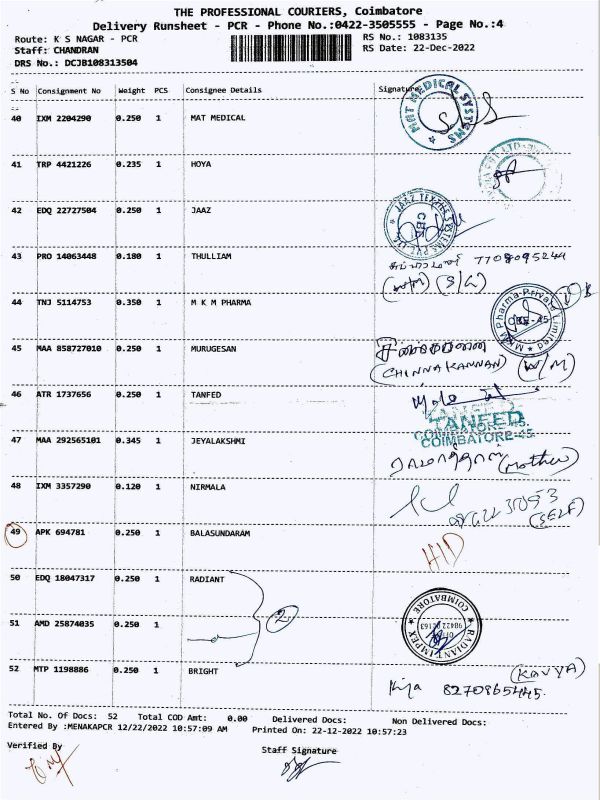 THE PROFESSIONAL COURIERS, Coimbatore
Delivery Runsheet - PCR - Phone No.:0422-3505555 - Page No.:4
Route: K S NAGAR - PCR RS No.: 1083135
Staff: CHANDRAN RS Date: 22-Dec-2022
DRS No.: DCJB108313504
S No Consignment No Weight PCS Consignee Details Signature
40 IXM 2204290 0.250 1 MAT MEDICAL
MAT MEDICAL SYSTEMS
41 TRP 4421226 0.235 1 HOYA
42 EDQ 22727504 0.250 1 JAAZ
43 PRO 14063448 0.180 1 THULLIAM 7708095244
44 TNJ 5114753 0.350 1 M K M PHARMA
MKM Pharma Private Limited
CBE-45
45 MAA 858727010 0.250 1 MURUGESAN
(CHINNAKANNAN) (W/M)
46 ATR 1737656 0.250 1 TANFED
TANFED
COIMBATORE-45.
47 MAA 292565101 0.345 1 JEYALAKSHMI (Mother)
48 IXM 3357290 0.120 1 NIRMALA
(SELF)
49 APK 694781 0.250 1 BALASUNDARAM HID
50 EDQ 18047317 0.250 1 RADIANT
2
RADIANT IMPEX COIMBATORE
51 AMD 25874035 0.250 1
52 MTP 1198886 0.250 1 BRIGHT (KAVYA)
8270865445.
Total No. Of Docs: 52 Total COD Amt: 0.00 Delivered Docs: Non Delivered Docs:
Entered By :MENAKAPCR 12/22/2022 10:57:09 AM Printed On: 22-12-2022 10:57:23
Verified By Staff Signature